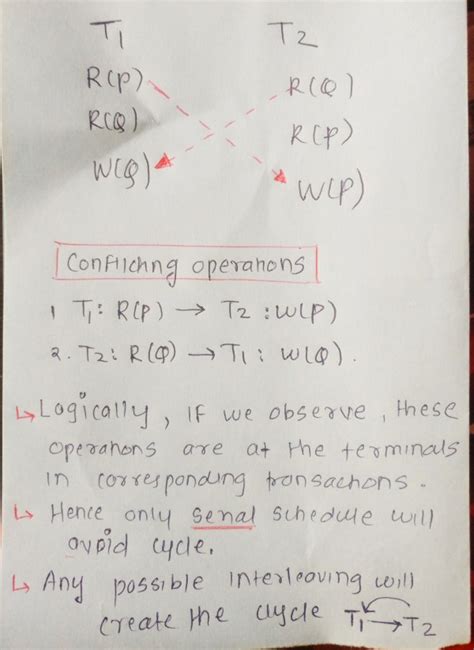 T1 T2
R(P) R(Q)
R(Q) R(P)
W(Q) W(P)
Conflicting operations
1 T1: R(P) → T2 : W(P)
2. T2: R(Q) → T1: W(Q).
↳ Logically, If we observe, these
operations are at the terminals
in corresponding transactions.
↳ Hence only serial schedule will
avoid cycle.
↳ Any possible interleaving will
create the cycle T1 → T2